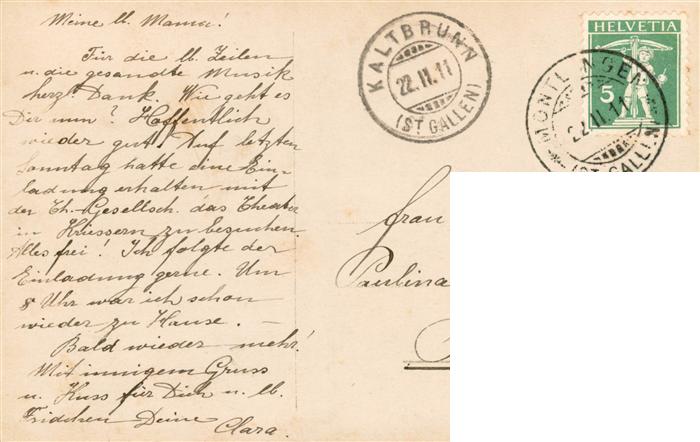 Meine lb. Mama!
Für die lb. Zeilen
u. die gesandte Musik
herz! Dank. Wie geht es
Dir nun? Hoffentlich
wieder gut! Auf letzten
Sonntag hatte eine Ein-
ladung erhalten mit
der Th.-Gesellsch. das Theater
in Kriessern zu besuchen.
Alles frei! Ich folgte der
Einladung gerne. Um
8 Uhr war ich schon
wieder zu Hause. —
Bald wieder mehr!
Mit innigem Gruss
u. Kuss für Dich u. lb.
Fridchen Deine
Clara.
KALTBRUNN
22.II.11
(ST GALLEN)
HELVETIA
5
MONTLINGEN
22.II.11
(ST. GALLEN)
Frau
Paulina